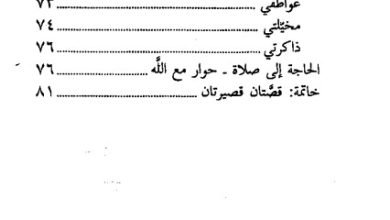 عواطفي ........................................ ٧٢
مخيّلتي ........................................ ٧٤
ذاكرتي ........................................ ٧٦
الحاجة إلى صلاة - حوار مع اللّه ........................ ٧٦
خاتمة: قصّتان قصيرتان ........................ ٨١